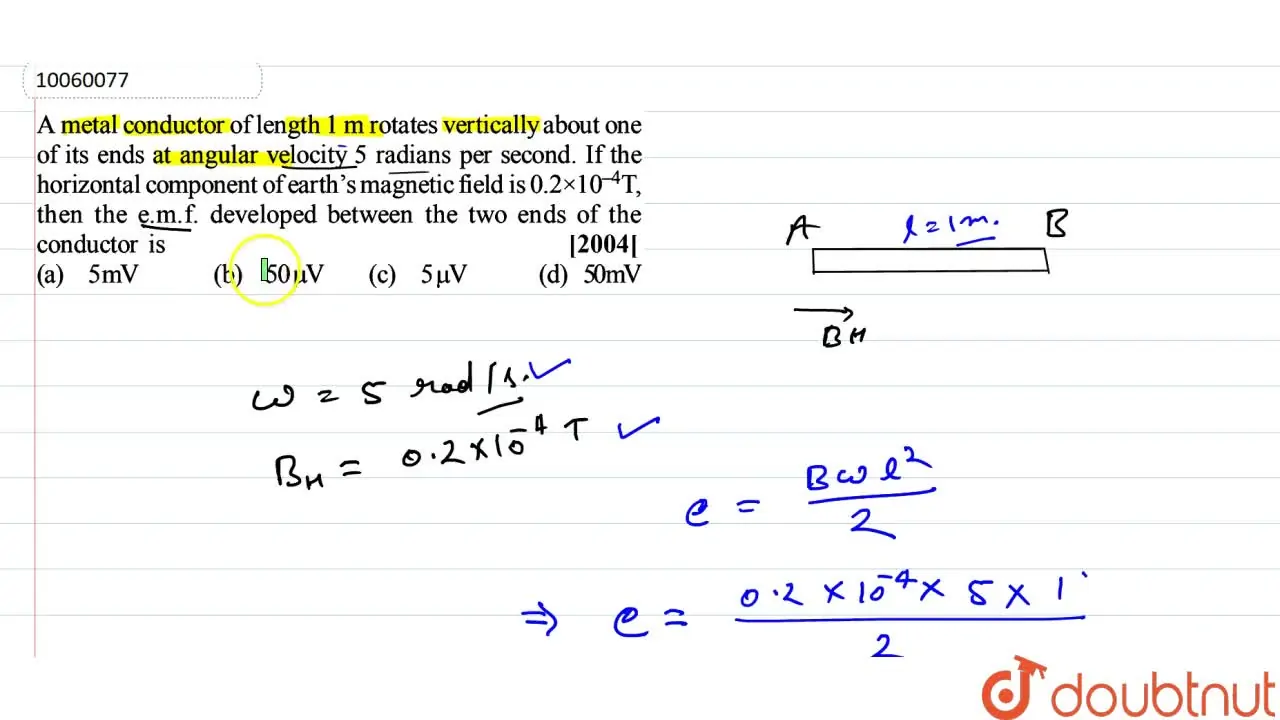 10060077
A metal conductor of length 1 m rotates vertically about one
of its ends at angular velocity 5 radians per second. If the
horizontal component of earth's magnetic field is 0.2×10⁻⁴T,
then the e.m.f. developed between the two ends of the
conductor is [2004[
(a) 5mV (b) 50μV (c) 5μV (d) 50mV
A l = 1m. B
B H
ω = 5 rad/s.
B_H = 0.2×10⁻⁴ T
e = Bωl²/2
⇒ e = 0.2 × 10⁻⁴ × 5 × 1/2
doubtnut